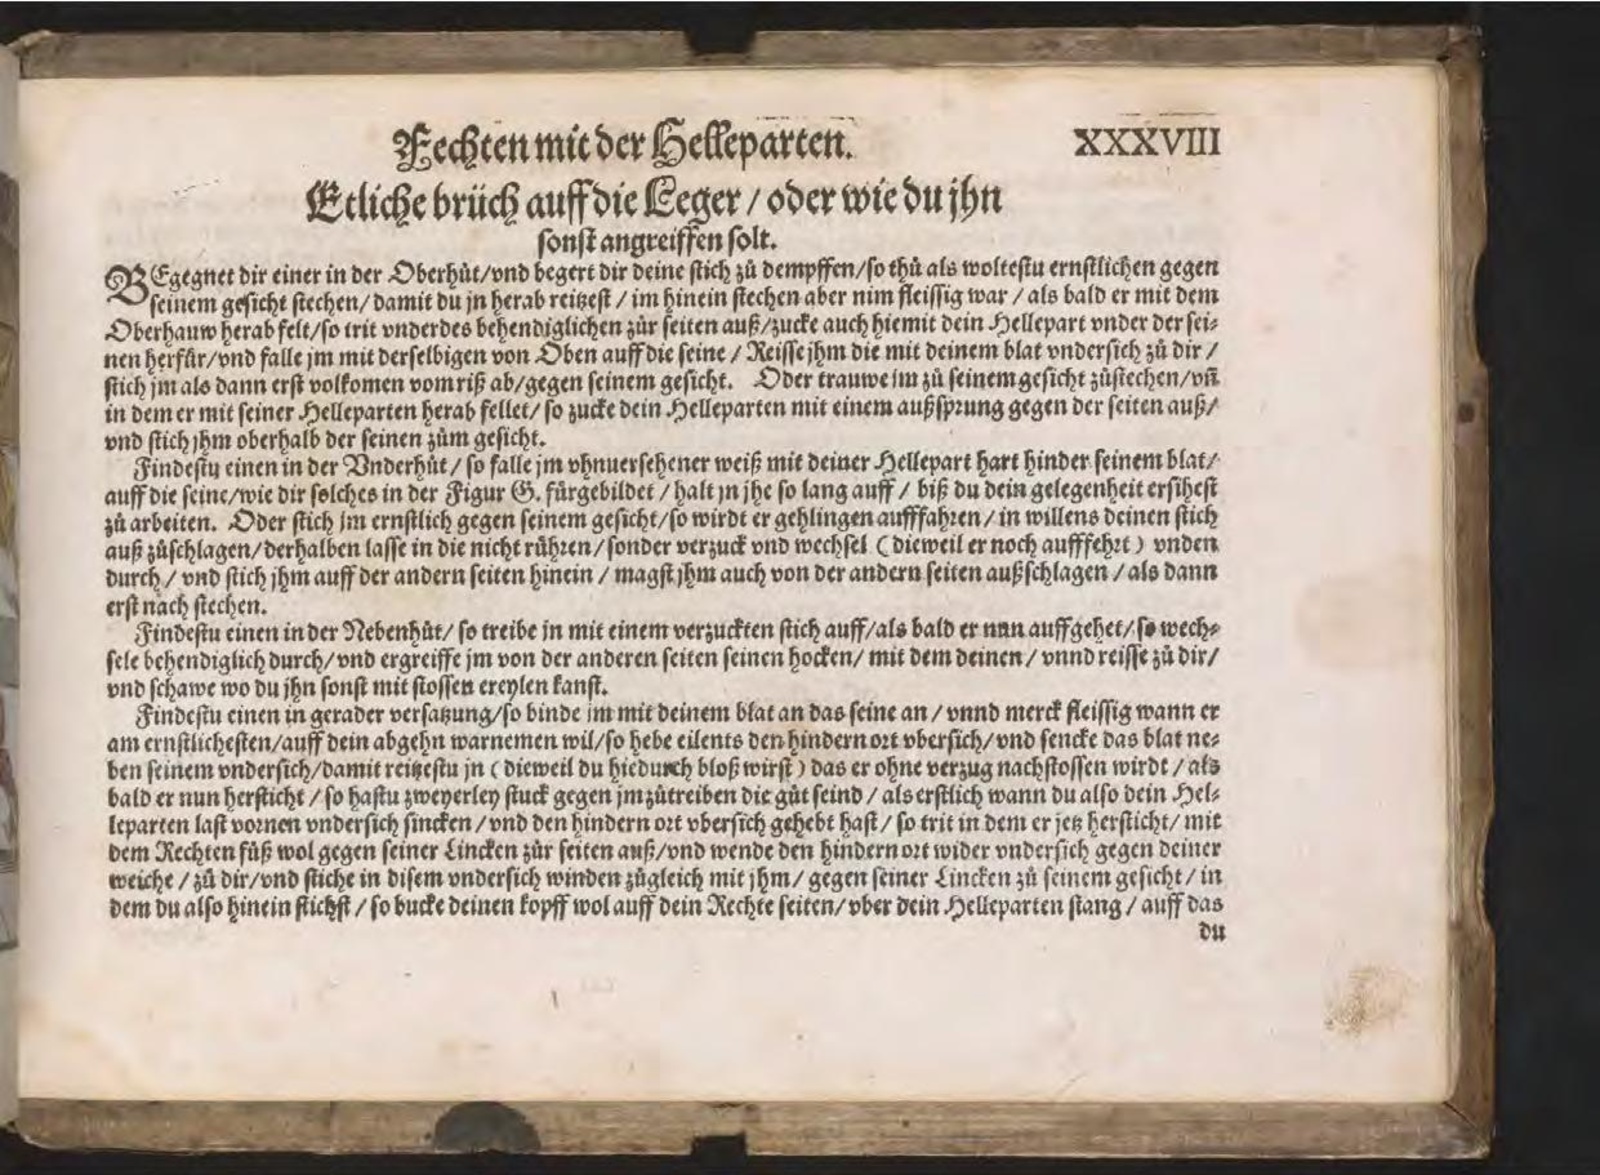 Fechten mit der Helleparten. XXXVIII
Etliche brüch auff die Leger / oder wie du jhn
sonst angreiffen solt.
BEgegnet dir einer in der Oberhůt/vnd begert dir deine stich zů dempffen/so thů als woltestu ernstlichen gegen
seinem gesicht stechen/damit du jn herab reitzest / im hinein stechen aber nim fleissig war / als bald er mit dem
Oberhauw herab felt/so trit vnderdes behendiglichen zůr seiten auß/zucke auch hiemit dein Hellepart vnder der sei-
nen herfür/vnd falle jm mit derselbigen von Oben auff die seine / Reisse jhm die mit deinem blat vndersich zů dir /
stich jm als dann erst volkomen vom riß ab/gegen seinem gesicht. Oder trauwe im zů seinem gesicht zůstechen/vñ
in dem er mit seiner Helleparten herab fellet/ so zucke dein Helleparten mit einem außsprung gegen der seiten auß/
vnd stich jhm oberhalb der seinen zům gesicht.
Findestu einen in der Vnderhůt / so falle jm vhnuersehener weiß mit deiner Hellepart hart hinder seinem blat/
auff die seine/wie dir solches in der Figur G. fürgebildet / halt jn jhe so lang auff / biß du dein gelegenheit ersihest
zů arbeiten. Oder stich jm ernstlich gegen seinem gesicht/so wirdt er gehlingen aufffahren / in willens deinen stich
auß zůschlagen/derhalben lasse in die nicht rühren/sonder verzuck vnd wechsel (dieweil er noch aufffehrt) vnden
durch / vnd stich jhm auff der andern seiten hinein / magst jhm auch von der andern seiten außschlagen / als dann
erst nach stechen.
Findestu einen in der Nebenhůt/ so treibe jn mit einem verzuckten stich auff/als bald er nun auffgehet/ so wech-
sele behendiglich durch/vnd ergreiffe jm von der anderen seiten seinen hocken/ mit dem deinen / vnnd reisse zů dir/
vnd schawe wo du jhn sonst mit stossen ereylen kanst.
Findestu einen in gerader versatzung/so binde jm mit deinem blat an das seine an / vnnd merck fleissig wann er
am ernstlichesten/auff dein abgehn warnemen wil/so hebe eilents den hindern ort vbersich/vnd sencke das blat ne-
ben seinem vndersich/damit reitzestu jn (dieweil du hiedurch bloß wirst) das er ohne verzug nachstossen wirdt / als
bald er nun hersticht / so hastu zweyerley stuck gegen jm zůtreiben die gůt seind / als erstlich wann du also dein Hel-
leparten last vornen vndersich sincken / vnd den hindern ort vbersich gehebt hast / so trit in dem er jetz hersticht/ mit
dem Rechten fůß wol gegen seiner Lincken zůr seiten auß/vnd wende den hindern ort wider vndersich gegen deiner
weiche / zů dir/vnd stiche in disem vndersich winden zůgleich mit jhm / gegen seiner Lincken zů seinem gesicht / in
dem du also hinein stichst / so bucke deinen kopff wol auff dein Rechte seiten/ vber dein Helleparten stang / auff das
du